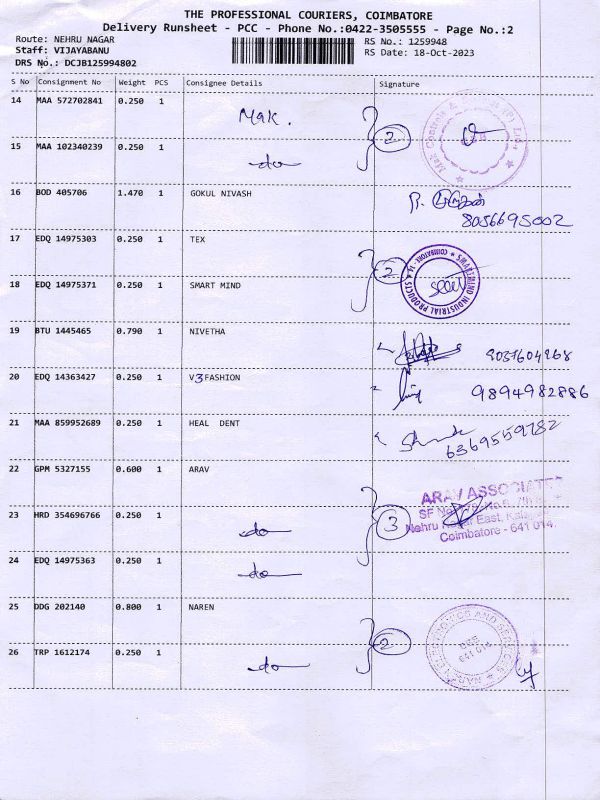 THE PROFESSIONAL COURIERS, COIMBATORE
Delivery Runsheet - PCC - Phone No.:0422-3505555 - Page No.:2
Route: NEHRU NAGAR RS No.: 1259948
Staff: VIJAYABANU RS Date: 18-Oct-2023
DRS No.: DCJB125994802
S No Consignment No Weight PCS Consignee Details Signature
14 MAA 572702841 0.250 1 Mak. 2
15 MAA 102340239 0.250 1 -do-
16 BOD 405706 1.470 1 GOKUL NIVASH
8056695002
17 EDQ 14975303 0.250 1 TEX 2
SMARTMIND INDUSTRIAL PRODUCTS COIMBATORE - 14
18 EDQ 14975371 0.250 1 SMART MIND
19 BTU 1445465 0.790 1 NIVETHA
20 EDQ 14363427 0.250 1 V3FASHION 9894982886
21 MAA 859952689 0.250 1 HEAL DENT 6369559782
22 GPM 5327155 0.600 1 ARAV
ARAV ASSOCIATES
23 HRD 354696766 0.250 1 -do- 3
Nehru Nagar East,
Coimbatore - 641 014.
24 EDQ 14975363 0.250 1 -do-
25 DDG 202140 0.800 1 NAREN 2
AND SERVICES
641 014
26 TRP 1612174 0.250 1 -do-